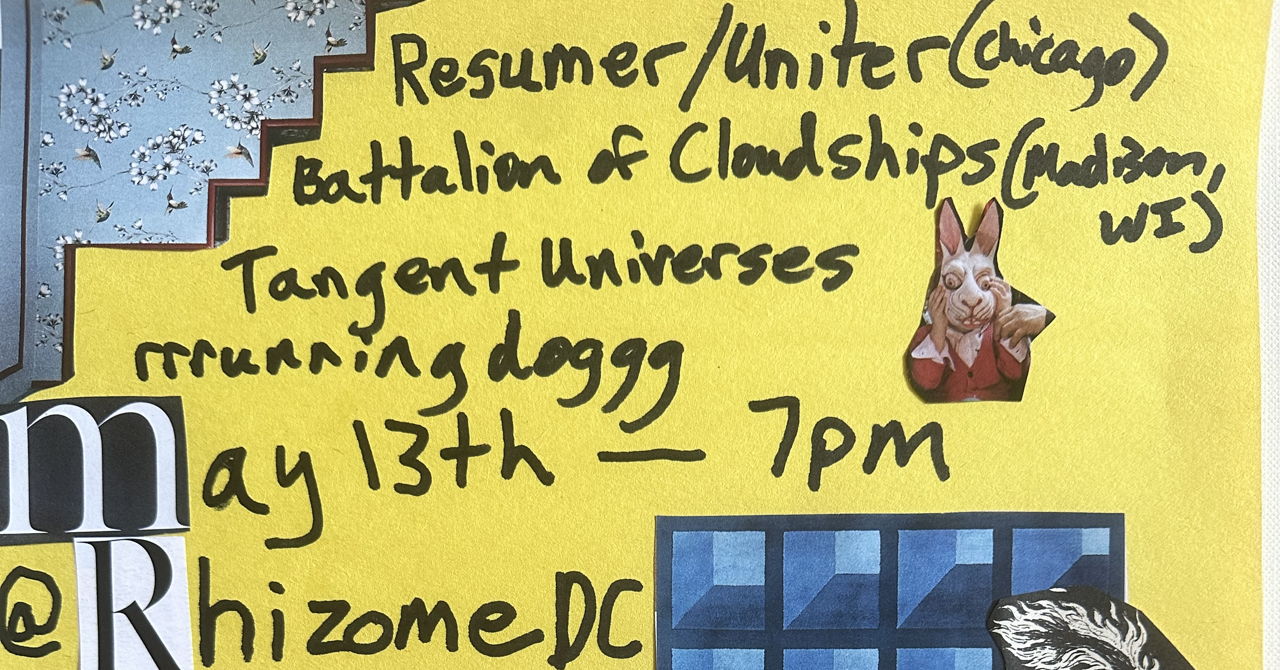 Resumer/Uniter (Chicago)
Battalion of Cloudships (Madison, WI)
Tangent Universes
rrrunning doggg
May 13th — 7pm
@ Rhizome DC